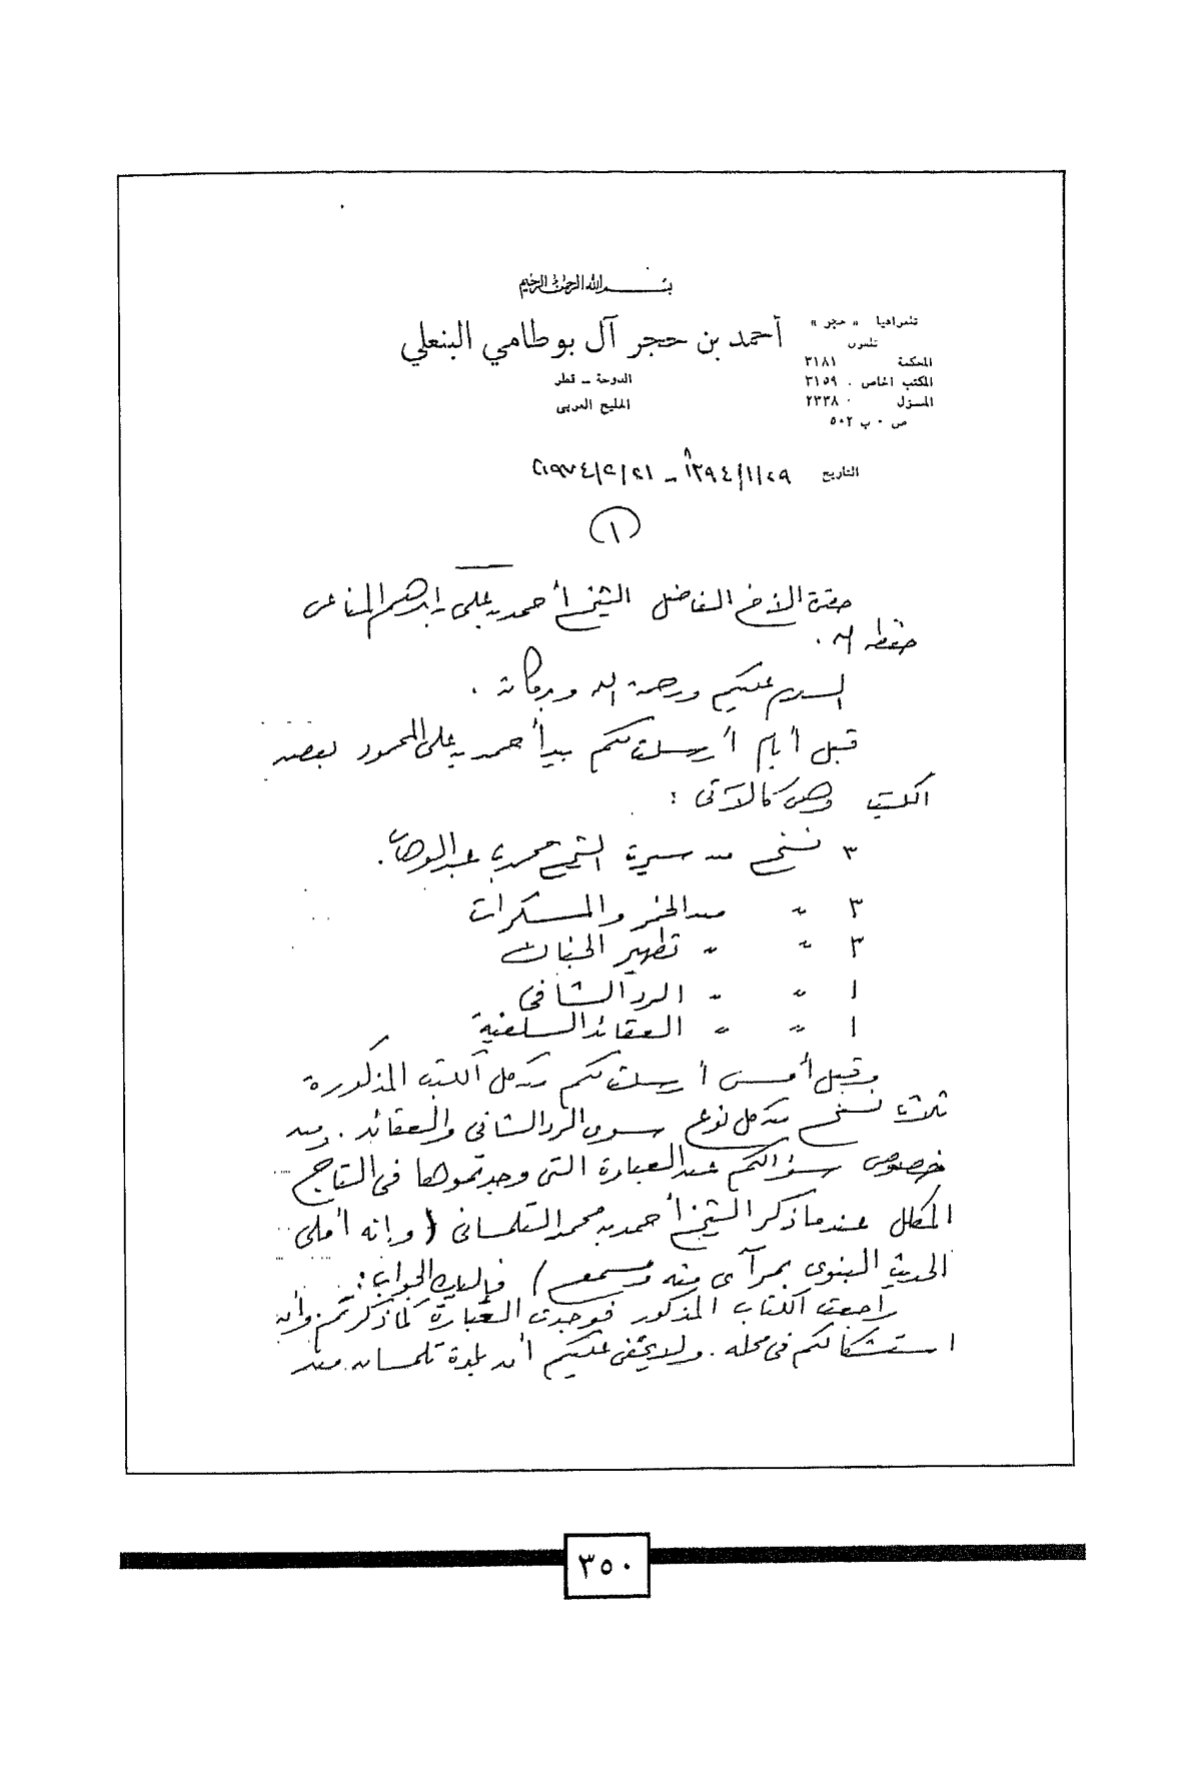 بسم الله الرحمن الرحيم
تلغرافيا « حجر »
أحمد بن حجر آل بوطامي البنعلي
تلفون
المحكمة ٣١٨١
الدوحة – قطر
المكتب الخاص . ٣١٥٩
الخليج العربي
المنزل . ٢٣٣٨
ص . ب ٥٠٢
التاريخ ١٣٩٤/١/٢٩هـ - ١٩٧٤/٢/٢١م
(١)
حضرة الأخ الفاضل الشيخ أحمد بن علي بن ابراهيم المناعي
حفظه الله .
السلام عليكم ورحمة الله وبركاته .
قبل أيام أرسلت لكم بيد أحمد بن علي المحمود بعض
الكتب وهي كالآتي :
٣ نسخ من سيرة الشيخ محمد بن عبدالوهاب .
٣ " من الخمر والمسكرات
٣ " " تطهير الجنان
١ " " الرد الشافي
١ " " العقائد السلفية
وقبل أمس أرسلت لكم من كل الكتب المذكورة
ثلاث نسخ من كل نوع سوى الرد الشافي والعقائد . ومن
خصوص سؤالكم عن العبارة التي وجدتموها في التاج
المكلل عندما ذكر الشيخ أحمد بن محمد التلمساني ( وإنه أملى
الحديث النبوي بمرآى منه ومسمع ) فإليك الجواب :
راجعت الكتاب المذكور فوجدت العبارة كما ذكرتم وأن
استشكالكم في محله . ولا يخفى عليكم أن بلدة تلمسان من
٣٥٠